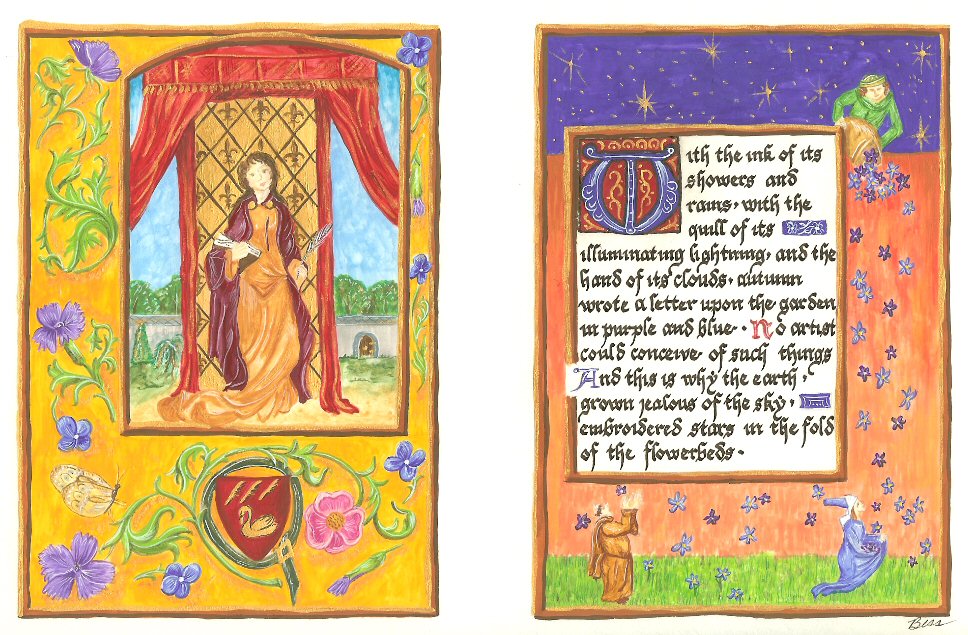 With the ink of its
showers and
rains, with the
quill of its
illuminating lightning, and the
hand of its clouds, autumn
wrote a letter upon the garden
in purple and blue. No artist
could conceive of such things
And this is why the earth,
grown jealous of the sky,
embroidered stars in the fold
of the flowerbeds.
Bess